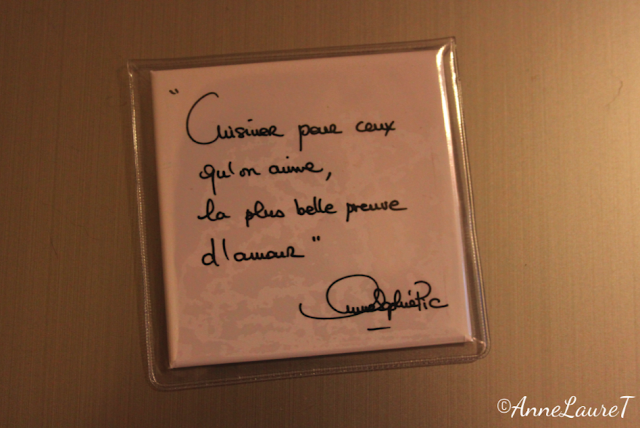 "Cuisiner pour ceux
qu'on aime,
la plus belle preuve
d'amour"
Anne-Sophie Pic
©AnneLaureT